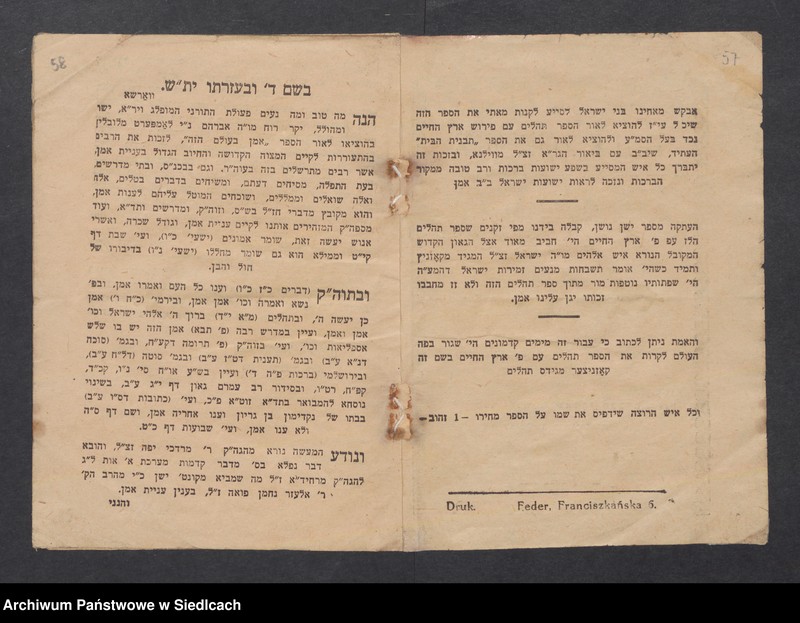 57
אבקש מאחינו בני ישראל לסייע לקנות מאתי את הספר הזה
עי״ז להוציא לאור הספר תהלים עם פירוש ארץ החיים
נכד בעל הסמ״ע ולהוציא לאור גם את הספר „תבנית הבית״
העתיד, שיב״ב עם ביאור הגר״א זצ״ל מווילנא, ובזכות זה
יתברך כל איש המסייע בשפע ישועות ברכות ורב טובה ממקור
הברכות ונזכה לראות ישועות ישראל ב״ב אמן
העתקה מספר ישן נושן, קבלה בידנו מפי זקנים שספר תהלים
הלז עם פ׳ ארץ החיים הי׳ חביב מאוד אצל הגאון הקדוש
המקובל הנורא איש אלהים מו״ה ישראל זצ״ל המגיד מקאזניץ
ותמיד כשהי׳ אומר תשבחות מנעים זמירות ישראל דהמע״ה
הי׳ שפתותיו נוטפות מור מתוך ספר תהלים הזה ולא זז מחבבו
זכותו יגן עלינו אמן.
והאמת ניתן לכתוב כי עבור זה מימים קדמונים הי׳ שגור בפה
העולם לקרות את הספר תהלים עם פ׳ ארץ החיים בשם זה
קאזניצער מגידס תהלים
וכל איש הרוצה שידפיס את שמו על הספר מחירו –1 זהוב–
Druk. Feder, Franciszkańska 6.
58
בשם ד׳ ובעזרתו ית״ש.
ווארשא
הנה מה טוב ומה נעים פעולת התורני המופלג ויר״א, ישר
ומהולל, יקר רוח מו״ה אברהם נ״י לאמפערט מלובלין
בהוציאו לאור הספר „אמן בעולם הזה״, לזכות את הרבים
בהתעוררות לקיים המצוה הקדושה והחיוב הגדול בעניית אמן,
אשר רבים מתרשלים בזה בעוה״ר. וגם בבכנ״ס, ובתי מדרשים,
בעת התפלה, מסיחים דעתם, ומשיחים בדברים בטלים, אלה
ואלה שואלים וממללים, ושוכחים המוטל עליהם לענות אמן,
והוא מקובץ מדברי חז״ל בש״ס, וזוה״ק, ומדרשים ותד״א, ועוד
מספה״ק המזהירים אותנו לקיים עניית אמן, וגודל שכרה, ואשרי
אנוש יעשה זאת, שומר אמונים (ישעי׳ כ״ו), ועי׳ שבת דף
קי״ט וממילא הוא גם שומר מחללו (ישעי׳ נ״ו) בדיבורו של
חול והבן.
ובתוה״ק (דברים כ״ז כ״ו) וענו כל העם ואמרו אמן. ובפ׳
נשא ואמרה וכו׳ אמן אמן, ובירמי׳ (כ״ח ו׳) אמן
כן יעשה ה׳, ובתהלים (מ״א י״ד) ברוך ה׳ אלהי ישראל וכו׳
אמן ואמן, ועיין במדרש רבה (פ׳ תבא) אמן הזה יש בו שלש
אספליאות וכו׳, ועי׳ בזוה״ק (פ׳ תרומה דקע״ח, ובגמ׳ (סוכה
דנ״א ע״ב) ובגמ׳ (תענית דט״ז ע״ב) ובגמ׳ סוטה (דל״ח ע״ב),
ובירושלמי (ברכות פ״ה ד׳) ועיין בש״ע או״ח סי׳ נ״ו, קכ״ד,
קפ״ח, רט״ו, ובסידור רב עמרם גאון דף י״ג ע״ב, בשינוי
נוסחא להמבואר בתד״א זוט״א פ״כ, ועי׳ (כתובות דס״ו ע״ב)
בבתו של נקדימון בן גריון וענו אחריה אמן, ושם דף ס״ה
ולא ענו אמן, ועי׳ שבועות דף כ״ט.
ונודע המעשה נורא מהגה״ק ר׳ מרדכי יפה זצ״ל, והובא
דבר נפלא בס׳ מדבר קדמות מערכת א׳ אות ל״ג
להגה״ק מרחיד״א ז״ל מה שמביא מקונט׳ ישן כ״י מהרב הק׳
ר׳ אלעזר נחמן פואה ז״ל, בענין עניית אמן.
והנני
Archiwum Państwowe w Siedlcach